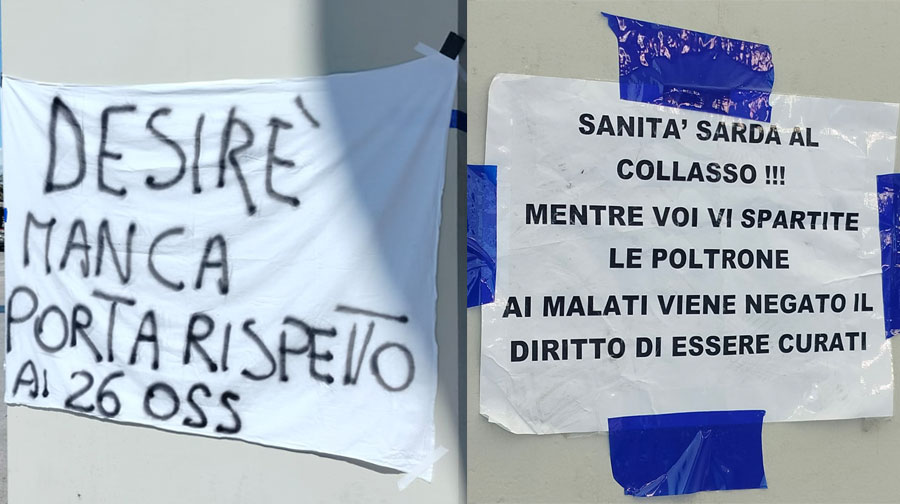 DESIRÈ
MANCA
PORTA RISPETTO
AI 26 OSS
SANITA' SARDA AL
COLLASSO !!!
MENTRE VOI VI SPARTITE
LE POLTRONE
AI MALATI VIENE NEGATO IL
DIRITTO DI ESSERE CURATI